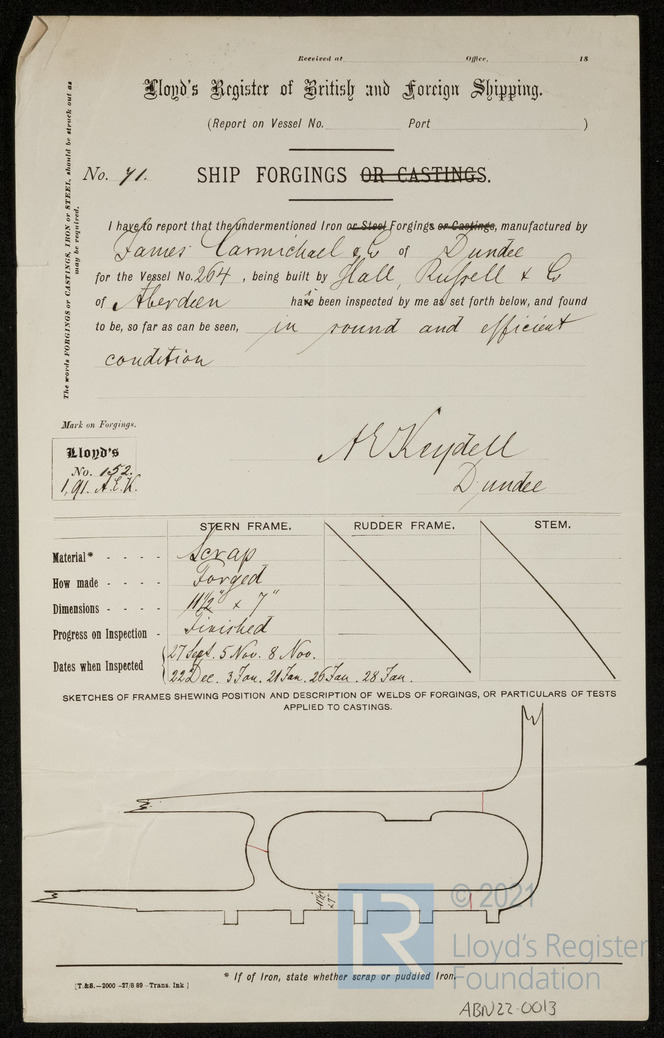 Received at Office, 18
Lloyd's Register of British and Foreign Shipping.
(Report on Vessel No. Port )
No. 71. SHIP FORGINGS OR CASTINGS.
The words FORGINGS or CASTINGS, IRON or STEEL, should be struck out as
may be required.
I have to report that the undermentioned Iron or Steel Forgings or Castings, manufactured by
James Carmichael & Co of Dundee
for the Vessel No. 264, being built by Hall, Russell & Co
of Aberdeen have been inspected by me as set forth below, and found
to be, so far as can be seen, in sound and efficient
condition
Mark on Forgings.
Lloyd's
No. 152.
1,91. A.E.K.
A E Keydell
Dundee
STERN FRAME. RUDDER FRAME. STEM.
Material* - - - - Scrap
How made - - - - Forged
Dimensions - - - - 11½" x 7"
Progress on Inspection - Finished
Dates when Inspected 27 Sept. 5 Nov. 8 Nov.
22 Dec. 3 Jan. 21 Jan. 26 Jan. 28 Jan.
SKETCHES OF FRAMES SHEWING POSITION AND DESCRIPTION OF WELDS OF FORGINGS, OR PARTICULARS OF TESTS
APPLIED TO CASTINGS.
11½"
x 7"
LR
© 2021
Lloyd's Register
Foundation
* If of Iron, state whether scrap or puddled Iron.
[T.&S.—2000—27/8 89—Trans. Ink]
ABN22-0013